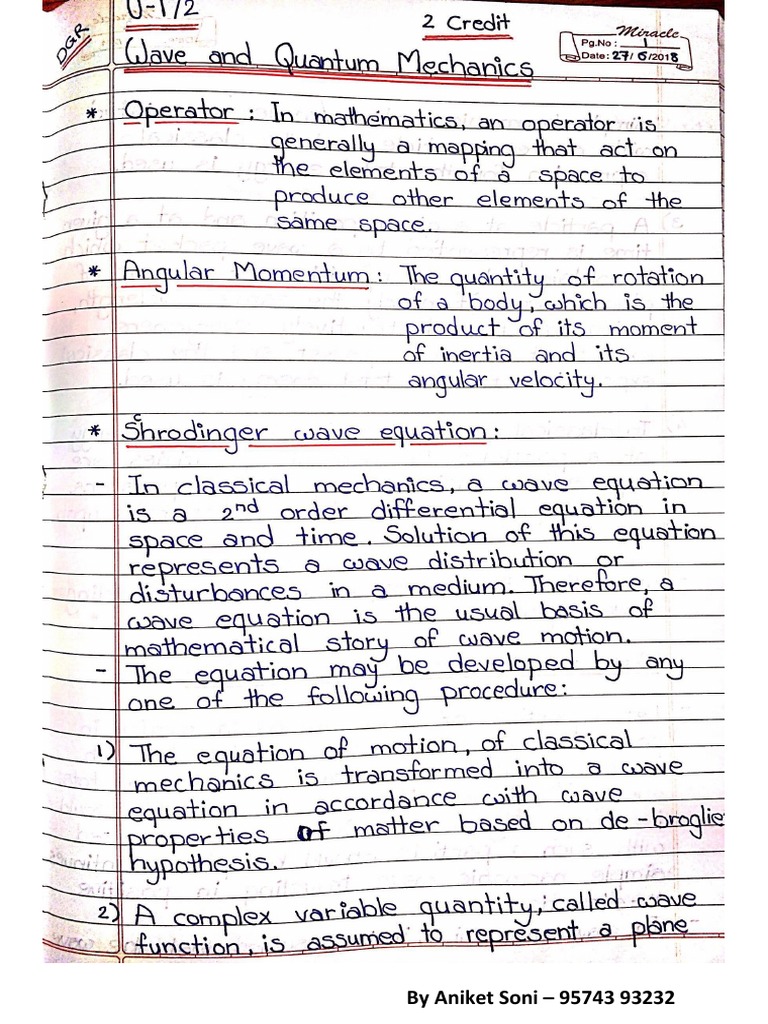 U-1/2
2 Credit
DGR
Miracle
Pg.No : 1
Date: 27/6/2018
Wave and Quantum Mechanics
* Operator : In mathematics, an operator is
generally a mapping that act on
the elements of a space to
produce other elements of the
same space.
* Angular Momentum : The quantity of rotation
of a body, which is the
product of its moment
of inertia and its
angular velocity.
* Schrodinger wave equation :
- In classical mechanics, a wave equation
is a 2nd order differential equation in
space and time. Solution of this equation
represents a wave distribution or
disturbances in a medium. Therefore, a
wave equation is the usual basis of
mathematical story of wave motion.
- The equation may be developed by any
one of the following procedure:
1) The equation of motion, of classical
mechanics is transformed into a wave
equation in accordance with wave
properties of matter based on de-broglie
hypothesis.
2) A complex variable quantity, called wave
function, is assumed to represent a plane
By Aniket Soni – 95743 93232